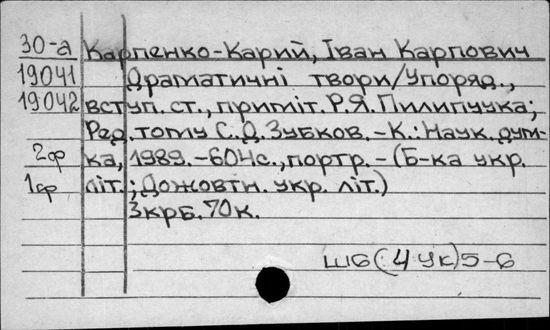 30-а Карпенко-Карий, Іван Карпович
19041 Драматичні твори/Упоряд.,
19042 вступ. ст., приміт. Р.Я. Пилипчука;
Ред. тому С.Д. Зубков. -К.: Наук. дум-
2ф ка, 1989. -604с., портр. - (Б-ка укр.
1ф літ.; Дожовтн. укр. літ.)
3крб. 70к.
Ш6(4Ук)5-6